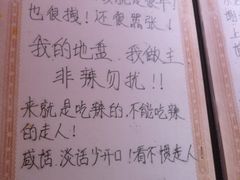 也很拽！还很嚣张！
我的地盘 我做主
非辣勿扰！！
来就是吃辣的，不能吃辣
的走人！
咸话，淡话少开口！看不惯走人！